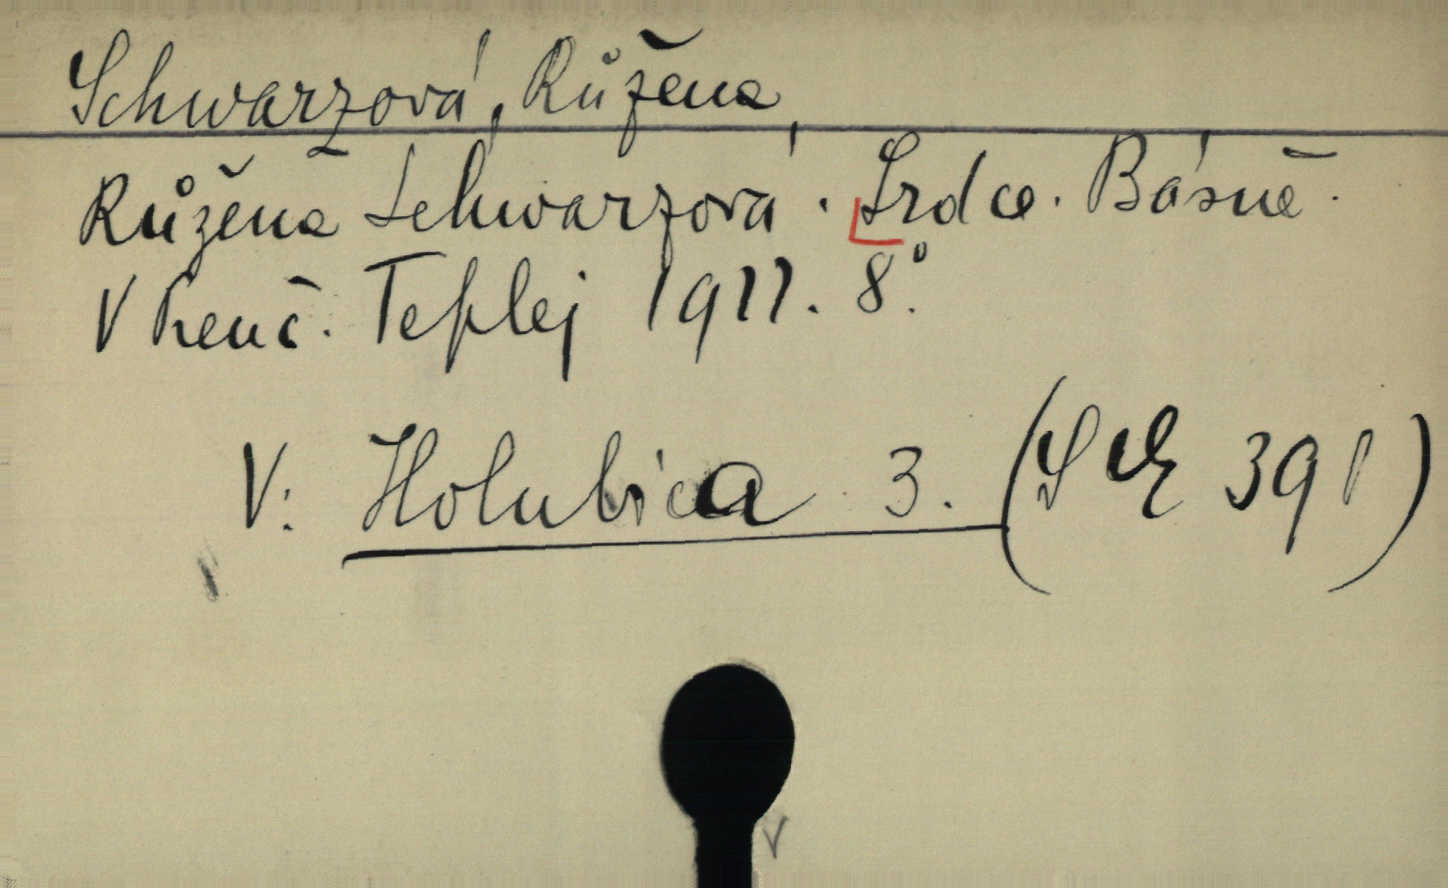 Schwarzová, Růžena,
Růžena Schwarzová. Srdce. Básně.
V Trenč. Teplej 1911. 8°.
V: Holubica 3. (SE 391)